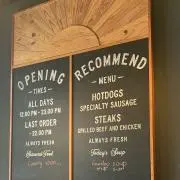 OPENING
- TIMES -
ALL DAYS
12.00 PM - 23.00 PM
LAST ORDER
- 22.00 PM
ALWAYS FRESH
RECOMMEND
- MENU -
HOTDOGS
SPECIALTY SAUSAGE
STEAKS
GRILLED BEEF AND CHICKEN
ALWAYS FRESH
Today's Soup